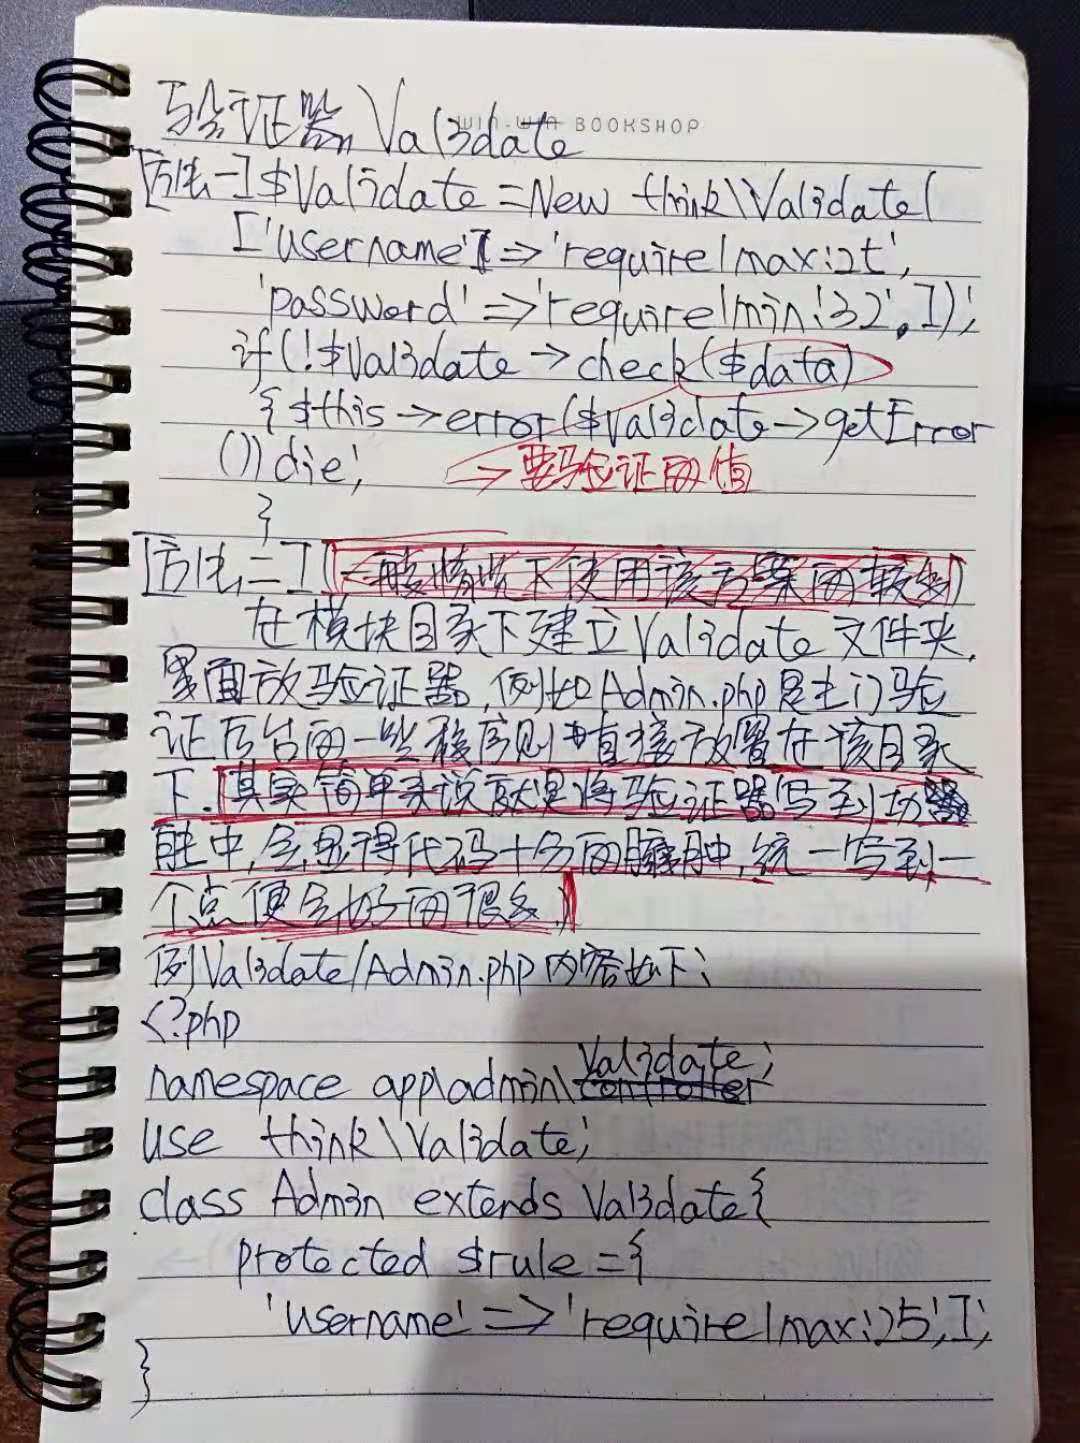 验证器 Validate
WIN-WIN BOOKSHOP
[方法一] $Validate = New think\Validate(
['username' => 'require|max:25',
'password' => 'require|min:32',]);
if(!$Validate->check($data)
{ $this->error($validate->getError
()) die;
→ 要验证的值
}
[方法二] (一般情况下使用该方案的较多)
在模块目录下建立Validate文件夹,
里面放验证器,例如Admin.php是专门验
证后台的一些程序则直接放置在该目录
下.(其实简单来说就是将验证器写到功
能中,会显得代码十分的臃肿,统一写到一
个点便会好的很多.)
例Validate/Admin.php内容如下:
<?php
namespace app\admin\Validate;
use think\Validate;
class Admin extends Validate{
protected $rule={
'username' => 'require|max:25',];
}